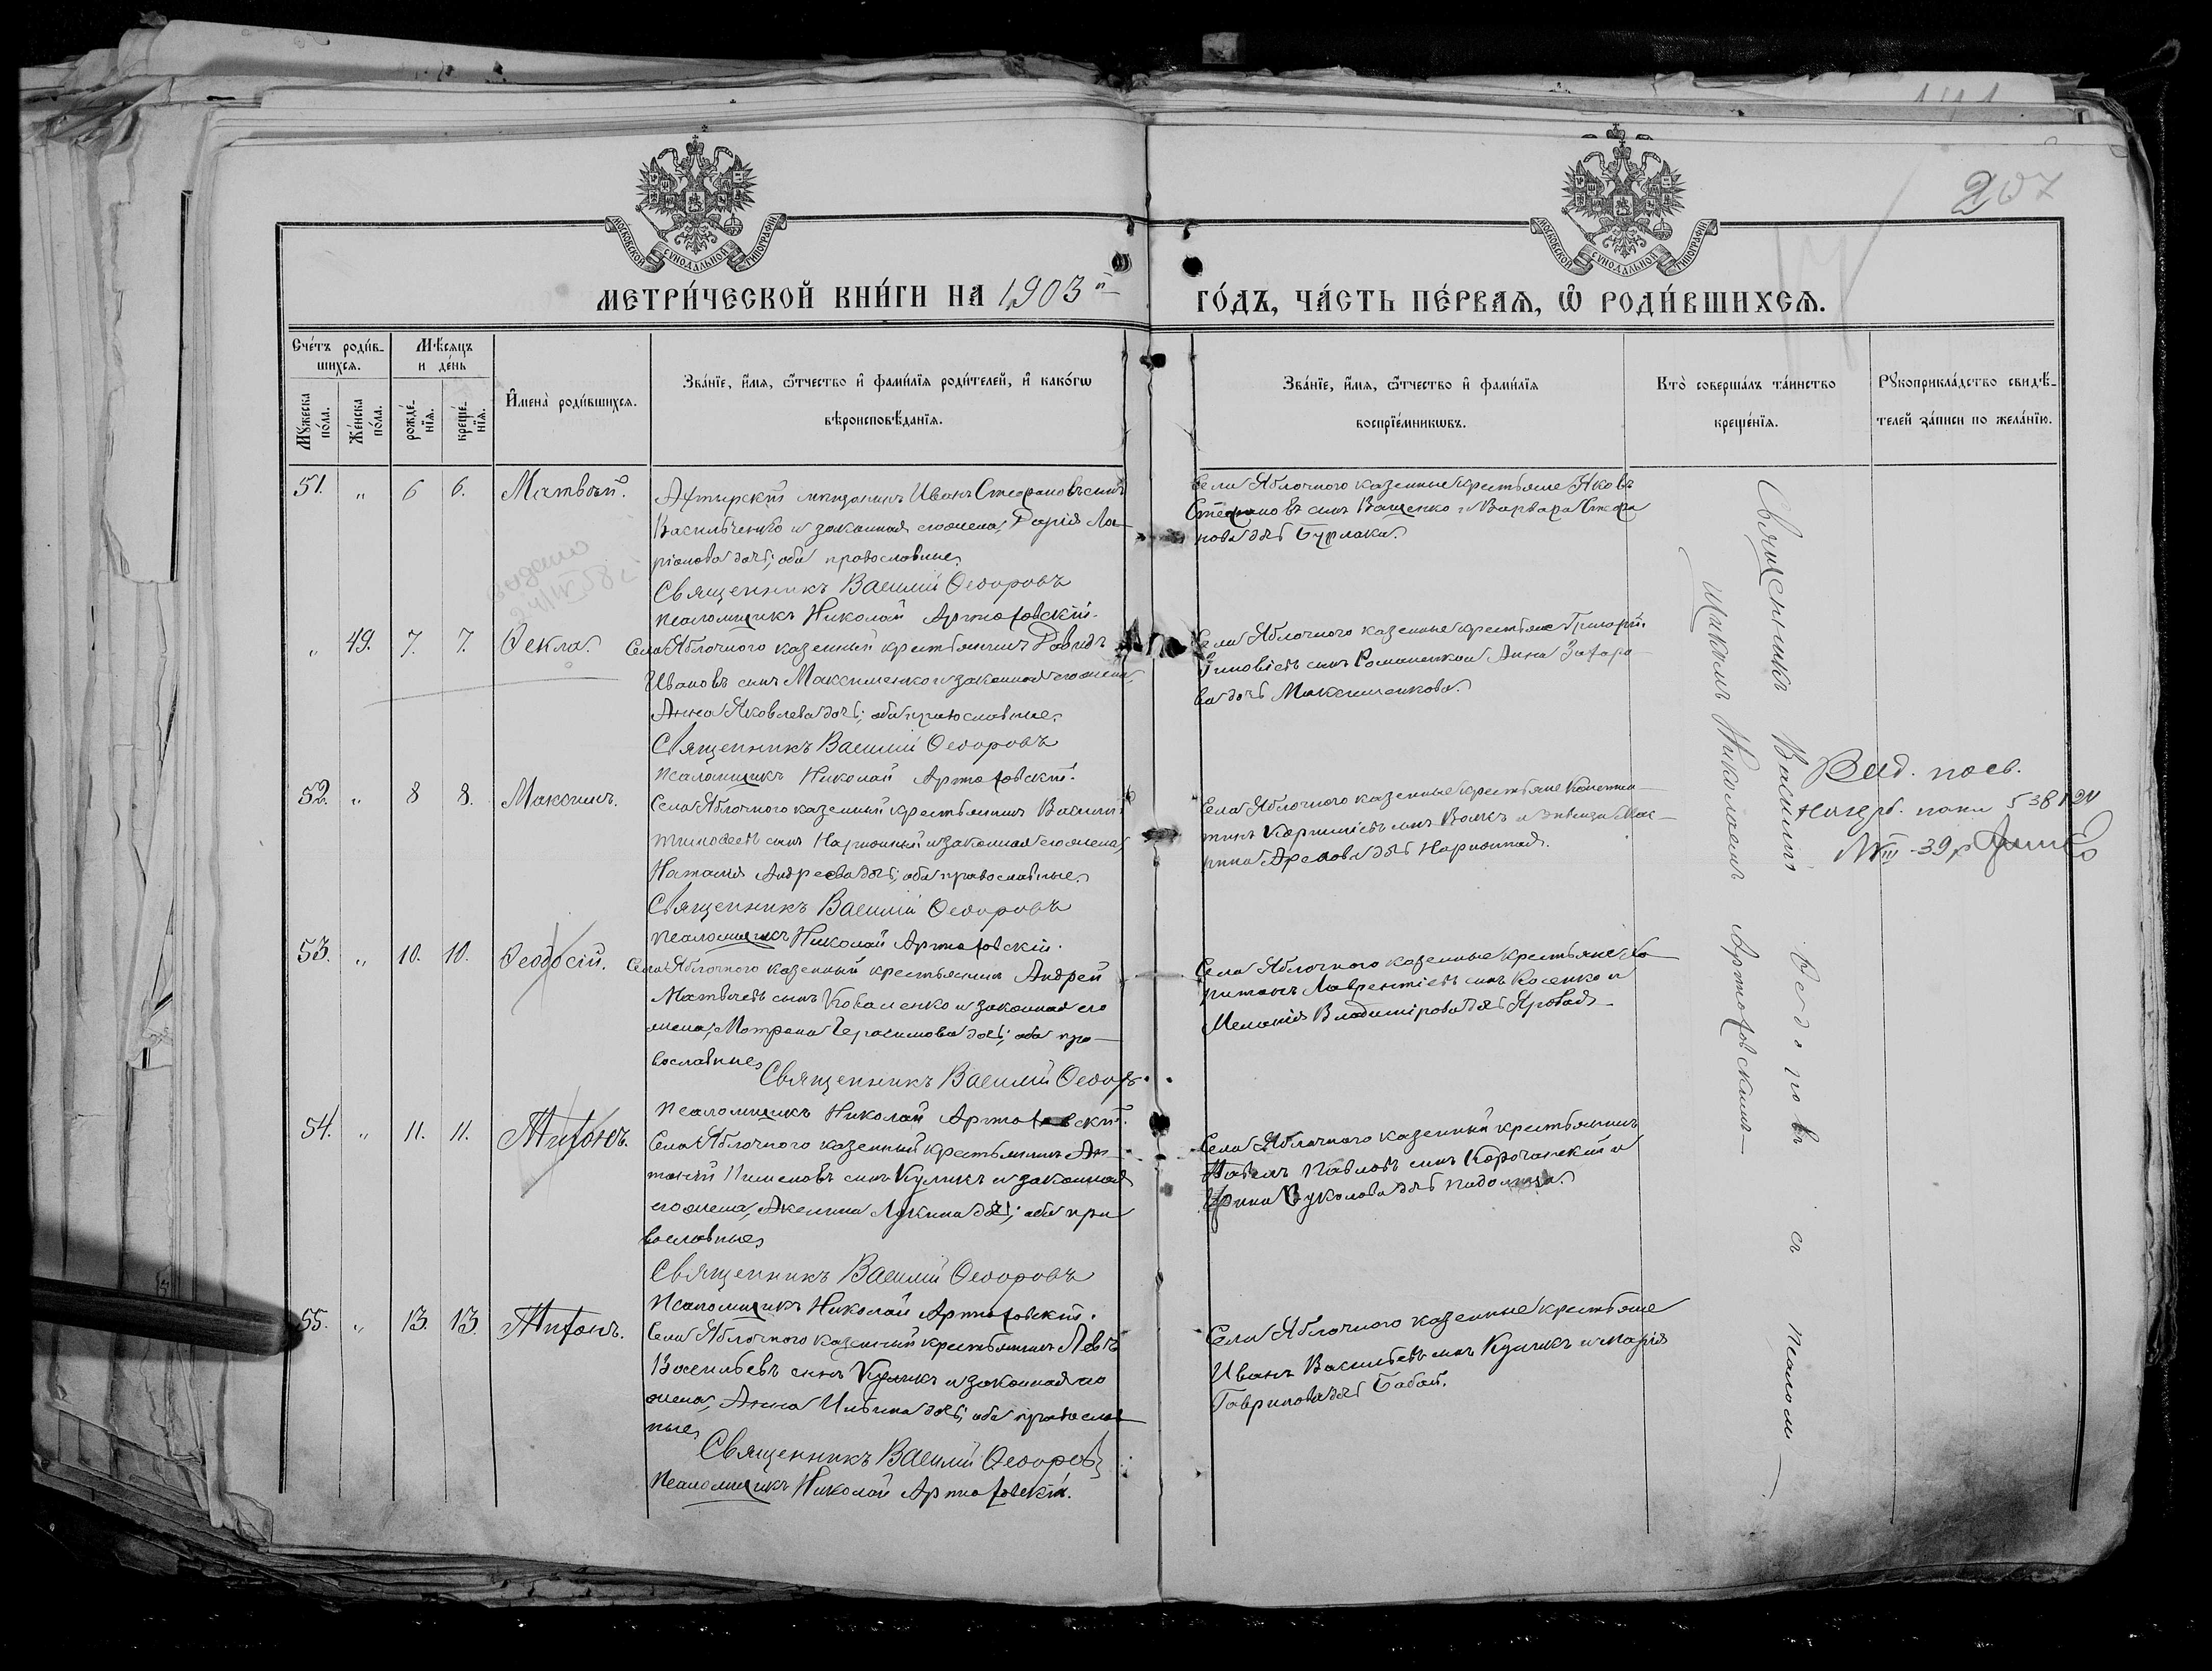 207
МОСКОВСКОЙ СУНОДАЛЬНОЙ ТИПОГРАФІИ
МОСКОВСКОЙ СУНОДАЛЬНОЙ ТИПОГРАФІИ
МЕТРИ́ЧЕСКОЙ КНИ́ГИ НА 1903й
ГО́ДЪ, ЧА́СТЬ ПЕ́РВАѦ, Ѽ РОДИ́ВШИХСѦ.
Сче́тъ роди́в-
шихсѧ.
Мꙋ́жеска по́ла.
Же́нска по́ла.
Мѣ́сѧцъ
и де́нь
рожде́-
нїѧ.
креще́-
нїѧ.
И҆мена̀ роди́вшихсѧ.
Зва́нїе, и҆́мѧ, ѻ҆́тчество и҆ фами́лїѧ роди́телей, и҆ како́гѡ
вѣроисповѣ́данїѧ.
Зва́нїе, и҆́мѧ, ѻ҆́тчество и҆ фами́лїѧ
воспрїе́мникѡвъ.
Кто̀ соверша́лъ та́инство
креще́нїѧ.
Рꙋкоприкла́дство свидѣ́-
телей за́писи по жела́нїю.
51. " 6 6. Матвѣй.
Ахтырскій мещанинъ Иванъ Стефановъ сынъ
Васильченко и законная его жена, Дарія Ла-
ріонова дочь; оба православные.
Священникъ Василій Ѳедоровъ
Псаломщикъ Николай Артюховскій.
Села Яблочного казенные крестьяне Яковъ
Стефановъ сынъ Ващенко и Варвара Стефа
нова дочь Бурлака.
" 49. 7. 7. Ѳекла.
Села Яблочного казенный крестьянинъ Давидъ
Ивановъ сынъ Максименко и законная его жена,
Анна Яковлева дочь; оба православные.
Священникъ Василій Ѳедоровъ
Псаломщикъ Николай Артюховскій.
Села Яблочного казенные крестьяне Григорій
сынъ Романенко и Анна Захаро
ва дочь Максименкова.
52. " 8 8. Максимъ.
Села Яблочного казенный крестьянинъ Василій
Тимофеевъ сынъ Нарижный и законная его жена,
Наталія Андреева дочь; оба православные.
Священникъ Василій Ѳедоровъ
Псаломщикъ Николай Артюховскій.
Села Яблочного казенные крестьяне Констан-
тинъ сынъ Волкъ и
дочь Нарижная.
Вид. посв.
39р
53. " 10. 10. Ѳеодосій.
Села Яблочного казенный крестьянинъ Андрей
Матвеевъ сынъ Коваленко и законная его
жена, Матрона Герасимова дочь; оба пра-
вославные.
Священникъ Василій Ѳедоръ
Псаломщикъ Николай Артюховскій.
Села Яблочного казенные крестьяне Ка-
питонъ Лаврентіевъ сынъ Косенко и
Меланія Владимірова дочь Яровая
54. " 11. 11. Тихонъ.
Села Яблочного казенный крестьянинъ Ан-
тоній Пименовъ сынъ Куликъ и законная
его жена, Акелина Лукина дочь; оба пра
вославные.
Священникъ Василій Ѳедоровъ
Псаломщикъ Николай Артюховскій.
Села Яблочного казенный крестьянинъ
Павелъ Павловъ сынъ Корочанскій и
Вуколова дочь
55. " 13. 13. Тихонъ.
Села Яблочного казенный крестьянинъ Левъ
Васильевъ сынъ Куликъ и законная его
жена, Анна Ильина дочь; оба православ
ные.
Священникъ Василій Ѳедоровъ
Псаломщикъ Николай Артюховскій.
Села Яблочного казенные крестьяне
Иванъ Васильевъ сынъ Куликъ и Марія
Гаврилова дочь Бабай.
Священникъ Василій Ѳедоровъ съ псалом-
щикомъ Николаемъ Артюховскимъ